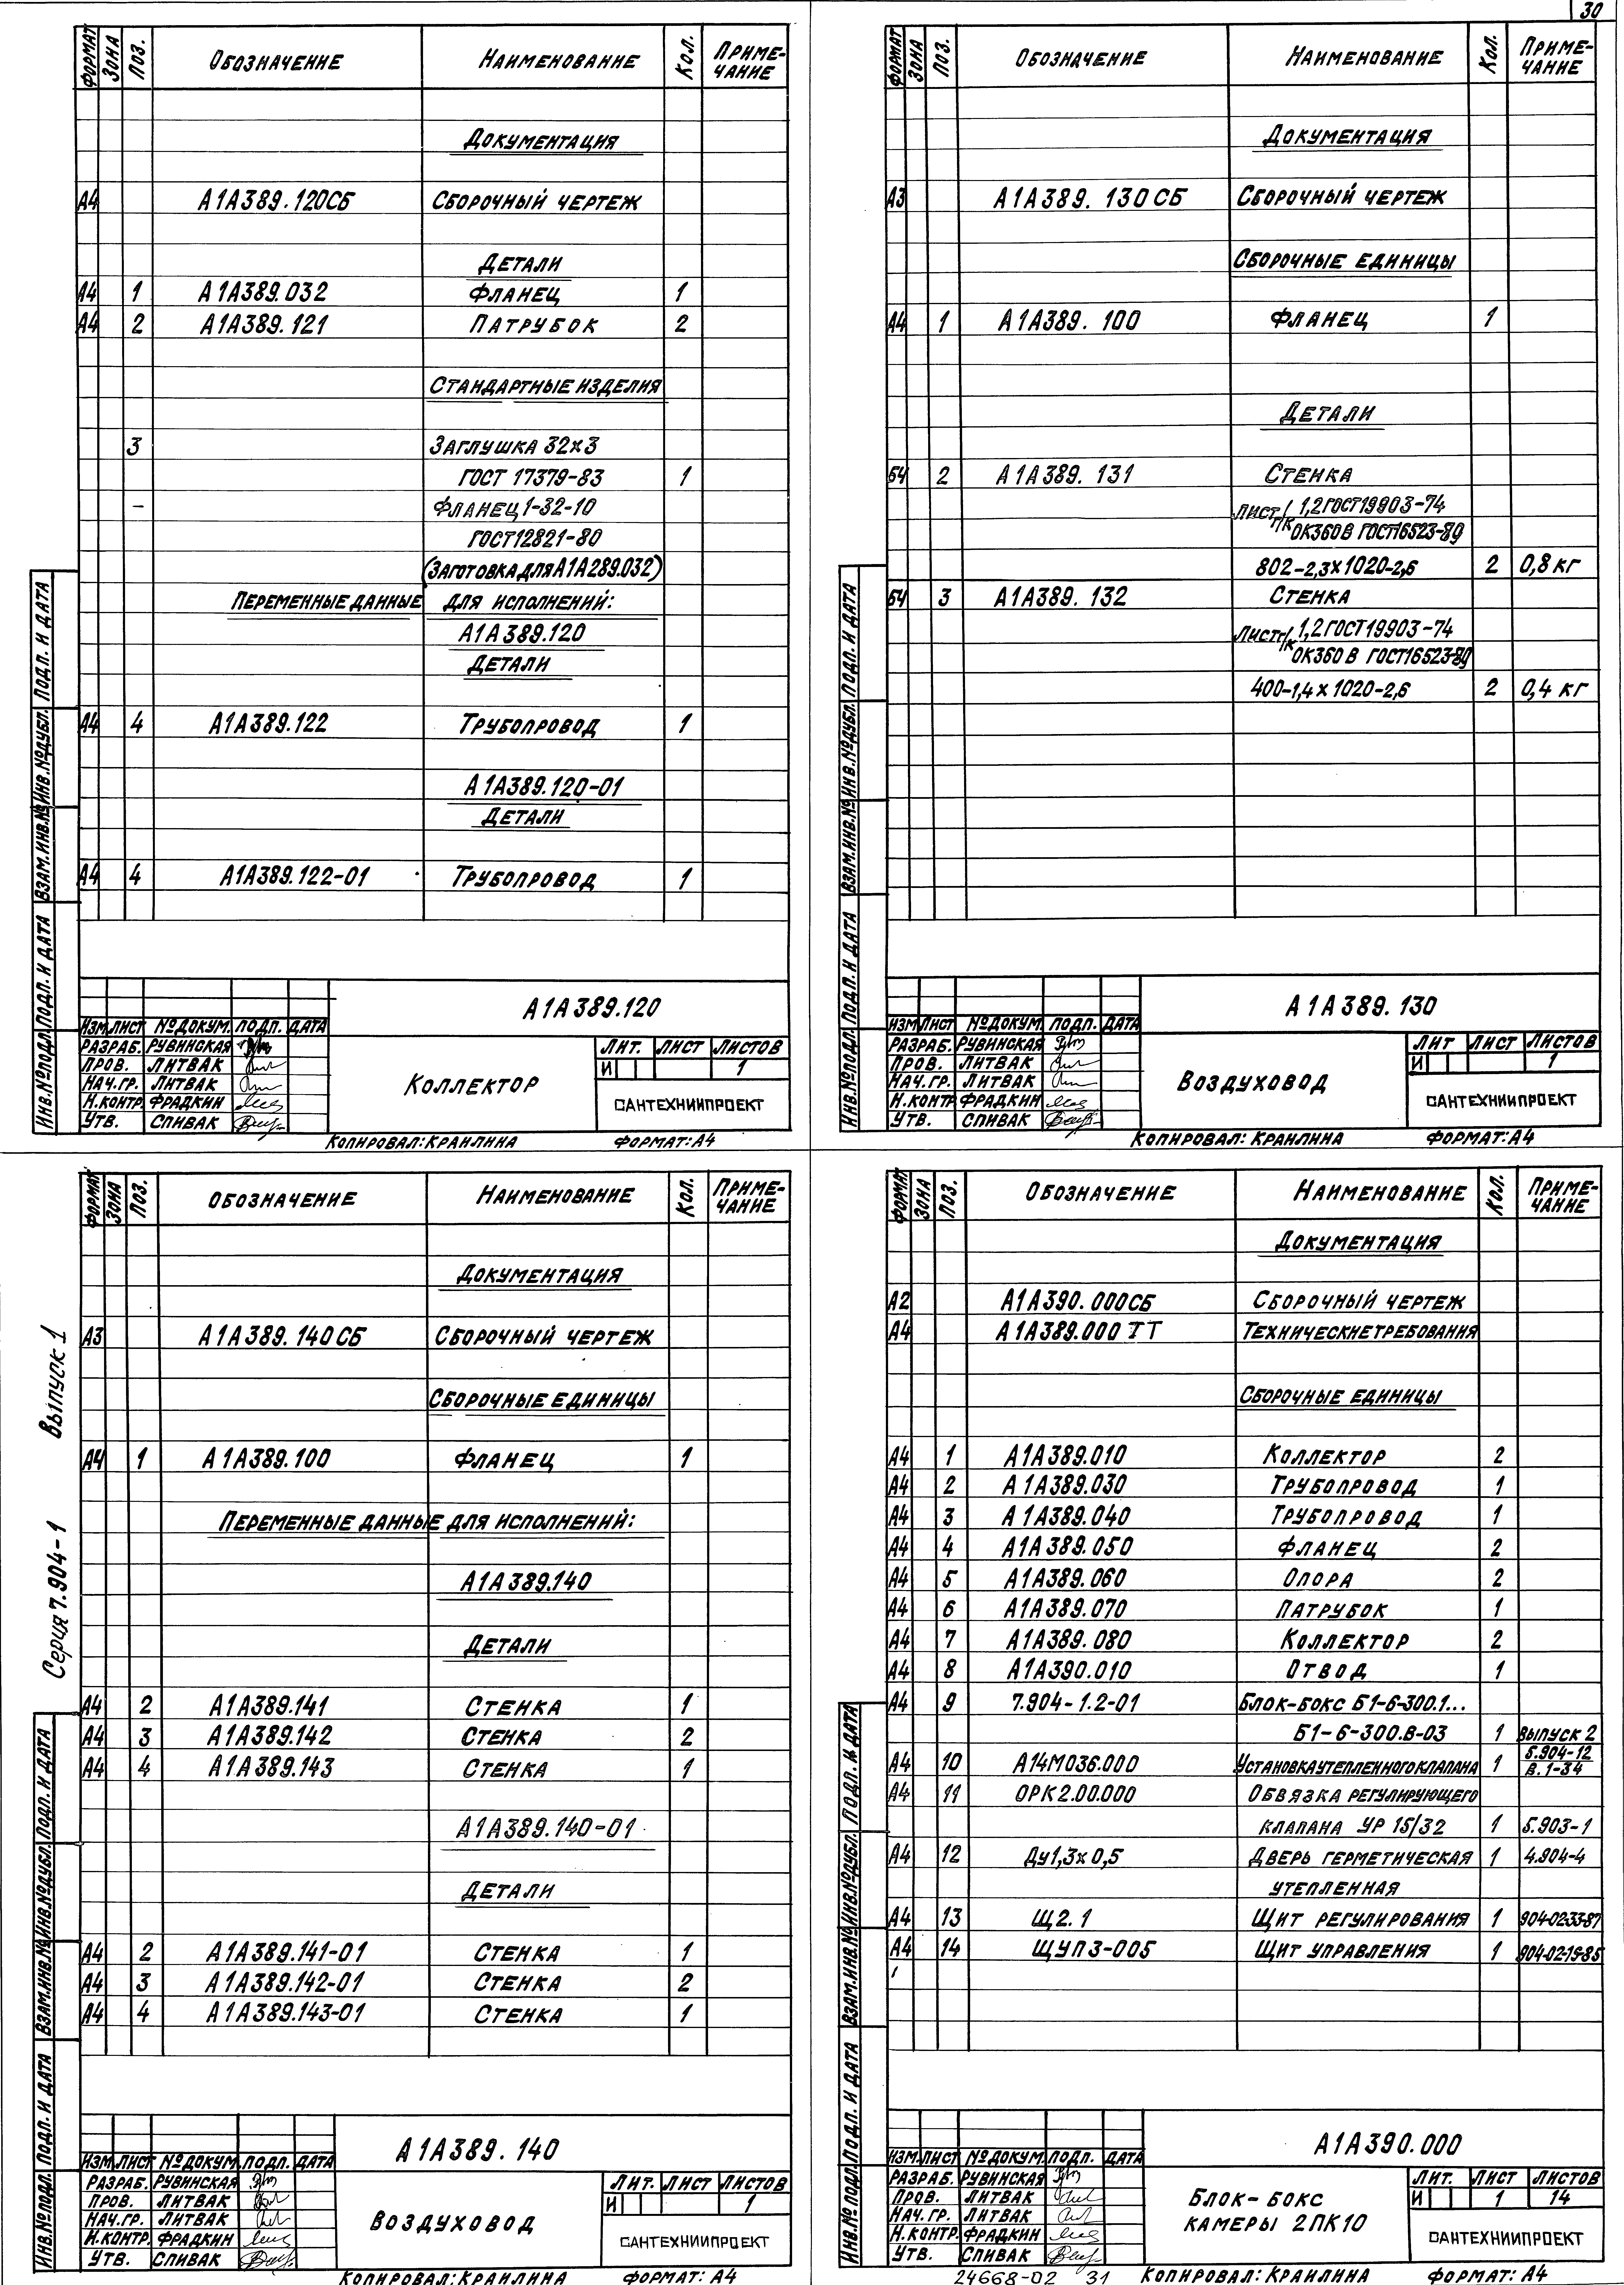 30
ФОРМАТ ЗОНА ПОЗ. ОБОЗНАЧЕНИЕ НАИМЕНОВАНИЕ КОЛ. ПРИМЕ-ЧАНИЕ
ДОКУМЕНТАЦИЯ
А4 А1А389.120СБ СБОРОЧНЫЙ ЧЕРТЕЖ
ДЕТАЛИ
А4 1 А1А389.032 ФЛАНЕЦ 1
А4 2 А1А389.121 ПАТРУБОК 2
СТАНДАРТНЫЕ ИЗДЕЛИЯ
3 ЗАГЛУШКА 32×3
ГОСТ 17379-83 1
- ФЛАНЕЦ 1-32-10
ГОСТ12821-80
(ЗАГОТОВКА ДЛЯ А1А289.032)
ПЕРЕМЕННЫЕ ДАННЫЕ ДЛЯ ИСПОЛНЕНИЙ:
А1А389.120
ДЕТАЛИ
А4 4 А1А389.122 ТРУБОПРОВОД 1
А1А389.120-01
ДЕТАЛИ
А4 4 А1А389.122-01 ТРУБОПРОВОД 1
ИНВ.№ПОДЛ. ПОДП. И ДАТА ВЗАМ.ИНВ.№ ИНВ.№ДУБЛ. ПОДП. И ДАТА
А1А389.120
ИЗМ. ЛИСТ №ДОКУМ. ПОДП. ДАТА
РАЗРАБ. РУВИНСКАЯ
ПРОВ. ЛИТВАК
НАЧ.ГР. ЛИТВАК
Н.КОНТР. ФРАДКИН
УТВ. СПИВАК
КОЛЛЕКТОР
ЛИТ. ЛИСТ ЛИСТОВ
И 1
САНТЕХНИИПРОЕКТ
КОПИРОВАЛ: КРАИЛИНА ФОРМАТ: А4
ФОРМАТ ЗОНА ПОЗ. ОБОЗНАЧЕНИЕ НАИМЕНОВАНИЕ КОЛ. ПРИМЕ-ЧАНИЕ
ДОКУМЕНТАЦИЯ
А3 А1А389.130СБ СБОРОЧНЫЙ ЧЕРТЕЖ
СБОРОЧНЫЕ ЕДИНИЦЫ
А4 1 А1А389.100 ФЛАНЕЦ 1
ДЕТАЛИ
БЧ 2 А1А389.131 СТЕНКА
ЛИСТ Г/К 1,2 ГОСТ19903-74
ОК360В ГОСТ16523-89
802-2,3×1020-2,6 2 0,8 КГ
БЧ 3 А1А389.132 СТЕНКА
ЛИСТ Г/К 1,2 ГОСТ19903-74
ОК360В ГОСТ16523-89
400-1,4×1020-2,6 2 0,4 КГ
ИНВ.№ПОДЛ. ПОДП. И ДАТА ВЗАМ.ИНВ.№ ИНВ.№ДУБЛ. ПОДП. И ДАТА
А1А389.130
ИЗМ ЛИСТ №ДОКУМ. ПОДП. ДАТА
РАЗРАБ. РУВИНСКАЯ
ПРОВ. ЛИТВАК
НАЧ.ГР. ЛИТВАК
Н.КОНТР. ФРАДКИН
УТВ. СПИВАК
ВОЗДУХОВОД
ЛИТ ЛИСТ ЛИСТОВ
И 1
САНТЕХНИИПРОЕКТ
КОПИРОВАЛ: КРАИЛИНА ФОРМАТ: А4
Серия 7.904-1 Выпуск 1
ФОРМАТ ЗОНА ПОЗ. ОБОЗНАЧЕНИЕ НАИМЕНОВАНИЕ КОЛ. ПРИМЕ-ЧАНИЕ
ДОКУМЕНТАЦИЯ
А3 А1А389.140СБ СБОРОЧНЫЙ ЧЕРТЕЖ
СБОРОЧНЫЕ ЕДИНИЦЫ
А4 1 А1А389.100 ФЛАНЕЦ 1
ПЕРЕМЕННЫЕ ДАННЫЕ ДЛЯ ИСПОЛНЕНИЙ:
А1А389.140
ДЕТАЛИ
А4 2 А1А389.141 СТЕНКА 1
А4 3 А1А389.142 СТЕНКА 2
А4 4 А1А389.143 СТЕНКА 1
А1А389.140-01
ДЕТАЛИ
А4 2 А1А389.141-01 СТЕНКА 1
А4 3 А1А389.142-01 СТЕНКА 2
А4 4 А1А389.143-01 СТЕНКА 1
ИНВ.№ПОДЛ. ПОДП. И ДАТА ВЗАМ.ИНВ.№ ИНВ.№ДУБЛ. ПОДП. И ДАТА
А1А389.140
ИЗМ. ЛИСТ №ДОКУМ. ПОДП. ДАТА
РАЗРАБ. РУВИНСКАЯ
ПРОВ. ЛИТВАК
НАЧ.ГР. ЛИТВАК
Н.КОНТР. ФРАДКИН
УТВ. СПИВАК
ВОЗДУХОВОД
ЛИТ. ЛИСТ ЛИСТОВ
И 1
САНТЕХНИИПРОЕКТ
КОПИРОВАЛ: КРАИЛИНА ФОРМАТ: А4
ФОРМАТ ЗОНА ПОЗ. ОБОЗНАЧЕНИЕ НАИМЕНОВАНИЕ КОЛ. ПРИМЕ-ЧАНИЕ
ДОКУМЕНТАЦИЯ
А2 А1А390.000СБ СБОРОЧНЫЙ ЧЕРТЕЖ
А4 А1А389.000 ТТ ТЕХНИЧЕСКИЕ ТРЕБОВАНИЯ
СБОРОЧНЫЕ ЕДИНИЦЫ
А4 1 А1А389.010 КОЛЛЕКТОР 2
А4 2 А1А389.030 ТРУБОПРОВОД 1
А4 3 А1А389.040 ТРУБОПРОВОД 1
А4 4 А1А389.050 ФЛАНЕЦ 2
А4 5 А1А389.060 ОПОРА 2
А4 6 А1А389.070 ПАТРУБОК 1
А4 7 А1А389.080 КОЛЛЕКТОР 2
А4 8 А1А390.010 ОТВОД 1
А4 9 7.904-1.2-01 БЛОК-БОКС Б1-6-300.1...
Б1-6-300.В-03 1 ВЫПУСК 2
А4 10 А14М036.000 УСТАНОВКА УТЕПЛЕННОГО КЛАПАНА 1 5.904-12 В.1-34
А4 11 ОРК2.00.000 ОБВЯЗКА РЕГУЛИРУЮЩЕГО
КЛАПАНА УР 15/32 1 5.903-1
А4 12 Ду1,3×0,5 ДВЕРЬ ГЕРМЕТИЧЕСКАЯ 1 4.904-4
УТЕПЛЕННАЯ
А4 13 Щ2.1 ЩИТ РЕГУЛИРОВАНИЯ 1 904-02-33-87
А4 14 ЩУП3-005 ЩИТ УПРАВЛЕНИЯ 1 904-02-15-85
ИНВ.№ ПОДЛ. ПОДП. И ДАТА ВЗАМ.ИНВ.№ ИНВ.№ДУБЛ. ПОДП. И ДАТА
А1А390.000
ИЗМ. ЛИСТ №ДОКУМ. ПОДП. ДАТА
РАЗРАБ. РУВИНСКАЯ
ПРОВ. ЛИТВАК
НАЧ.ГР. ЛИТВАК
Н.КОНТР. ФРАДКИН
УТВ. СПИВАК
БЛОК-БОКС
КАМЕРЫ 2ПК10
ЛИТ. ЛИСТ ЛИСТОВ
И 1 14
САНТЕХНИИПРОЕКТ
24668-02 31 КОПИРОВАЛ: КРАИЛИНА ФОРМАТ: А4